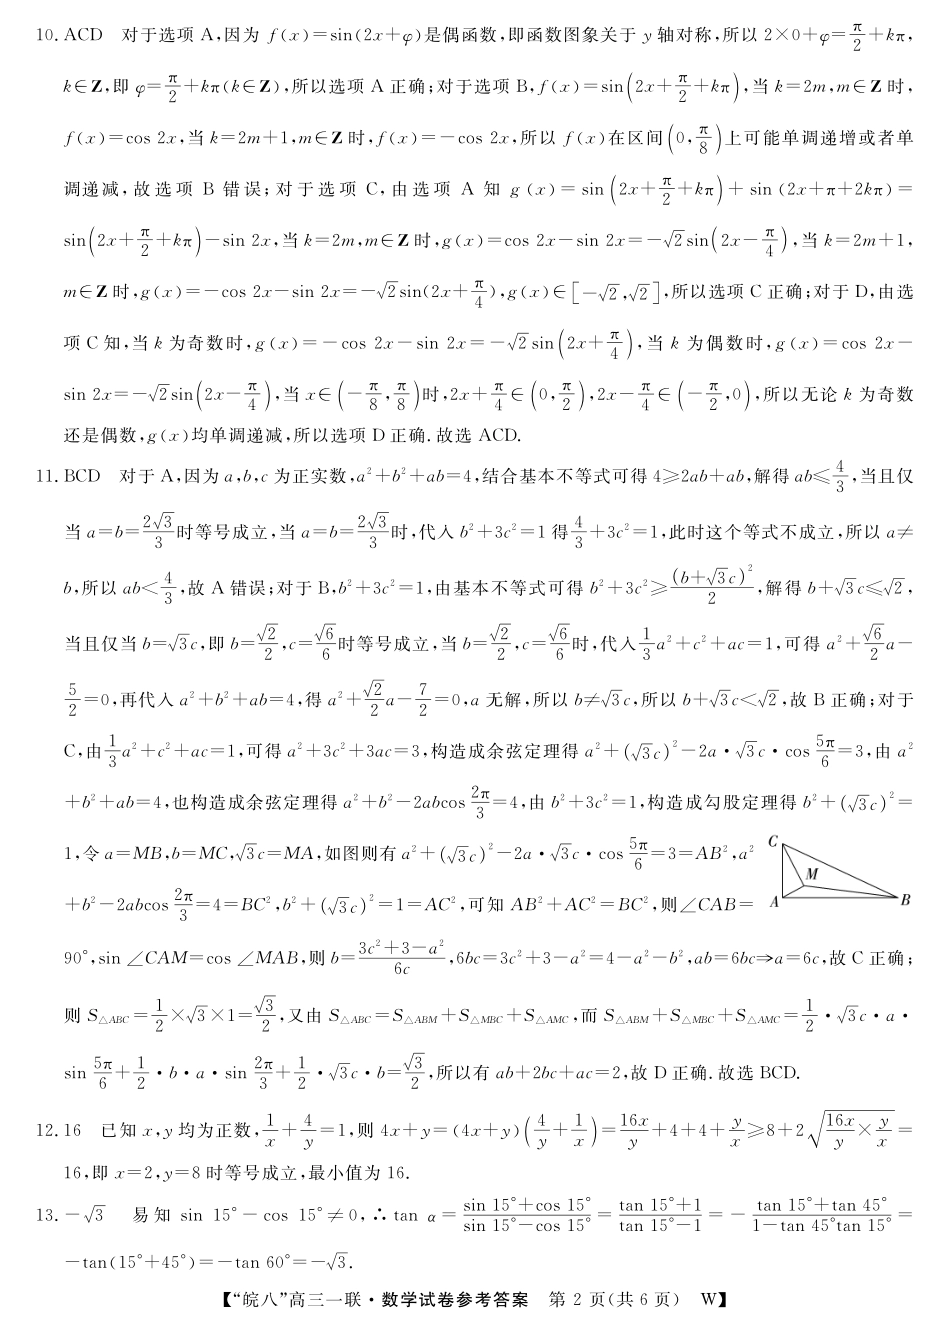 10. ACD　对于选项 A,因为 f(x)=sin(2x+φ)是偶函数,即函数图象关于 y 轴对称,所以 2×0+φ=π/2+kπ,
k∈Z,即 φ=π/2+kπ(k∈Z),所以选项 A 正确;对于选项 B,f(x)=sin(2x+π/2+kπ),当 k=2m,m∈Z 时,
f(x)=cos 2x,当 k=2m+1,m∈Z 时,f(x)=-cos 2x,所以 f(x)在区间(0,π/8)上可能单调递增或者单
调递减,故选项 B 错误;对于选项 C,由选项 A 知 g(x)=sin(2x+π/2+kπ)+sin(2x+π+2kπ)=
sin(2x+π/2+kπ)-sin 2x,当 k=2m,m∈Z 时,g(x)=cos 2x-sin 2x=-√2sin(2x-π/4),当 k=2m+1,
m∈Z 时,g(x)=-cos 2x-sin 2x=-√2sin(2x+π/4),g(x)∈[-√2,√2],所以选项 C 正确;对于 D,由选
项 C 知,当 k 为奇数时,g(x)=-cos 2x-sin 2x=-√2sin(2x+π/4),当 k 为偶数时,g(x)=cos 2x-
sin 2x=-√2sin(2x-π/4),当 x∈(-π/8,π/8)时,2x+π/4∈(0,π/2),2x-π/4∈(-π/2,0),所以无论 k 为奇数
还是偶数,g(x)均单调递减,所以选项 D 正确.故选 ACD.
11. BCD　对于 A,因为 a,b,c 为正实数,a²+b²+ab=4,结合基本不等式可得 4≥2ab+ab,解得 ab≤4/3,当且仅
当 a=b=2√3/3时等号成立,当 a=b=2√3/3时,代入 b²+3c²=1 得4/3+3c²=1,此时这个等式不成立,所以 a≠
b,所以 ab<4/3,故 A 错误;对于 B,b²+3c²=1,由基本不等式可得 b²+3c²≥(b+√3c)²/2,解得 b+√3c≤√2,
当且仅当 b=√3c,即 b=√2/2,c=√6/6时等号成立,当 b=√2/2,c=√6/6时,代入1/3a²+c²+ac=1,可得 a²+√6/2a-
5/2=0,再代入 a²+b²+ab=4,得 a²+√2/2a-7/2=0,a 无解,所以 b≠√3c,所以 b+√3c<√2,故 B 正确;对于
C,由1/3a²+c²+ac=1,可得 a²+3c²+3ac=3,构造成余弦定理得 a²+(√3c)²-2a·√3c·cos 5π/6=3,由 a²
+b²+ab=4,也构造成余弦定理得 a²+b²-2abcos 2π/3=4,由 b²+3c²=1,构造成勾股定理得 b²+(√3c)²=
1,令 a=MB,b=MC,√3c=MA,如图则有 a²+(√3c)²-2a·√3c·cos 5π/6=3=AB²,a²
+b²-2abcos 2π/3=4=BC²,b²+(√3c)²=1=AC²,可知 AB²+AC²=BC²,则∠CAB=
C
M
A
B
90°,sin ∠CAM=cos ∠MAB,则 b=(3c²+3-a²)/6c,6bc=3c²+3-a²=4-a²-b²,ab=6bc⇒a=6c,故 C 正确;
则 S△ABC=1/2×√3×1=√3/2,又由 S△ABC=S△ABM+S△MBC+S△AMC,而 S△ABM+S△MBC+S△AMC=1/2·√3c·a·
sin 5π/6+1/2·b·a·sin 2π/3+1/2·√3c·b=√3/2,所以有 ab+2bc+ac=2,故 D 正确.故选 BCD.
12. 16　已知 x,y 均为正数,1/x+4/y=1,则 4x+y=(4x+y)(4/y+1/x)=16x/y+4+4+y/x≥8+2√(16x/y×y/x)=
16,即 x=2,y=8 时等号成立,最小值为 16.
13. -√3　易知 sin 15°-cos 15°≠0,∴tan α=(sin 15°+cos 15°)/(sin 15°-cos 15°)=(tan 15°+1)/(tan 15°-1)=-(tan 15°+tan 45°)/(1-tan 45°tan 15°)=
-tan(15°+45°)=-tan 60°=-√3.
【“皖八”高三一联·数学试卷参考答案　第 2 页(共 6 页)　W】